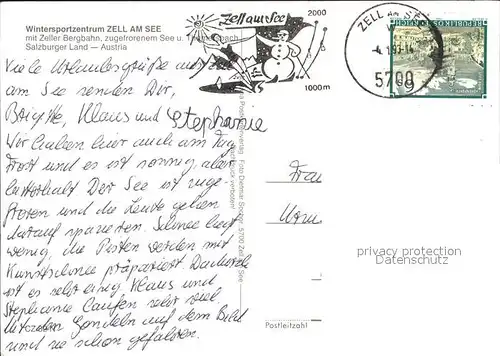 Wintersportzentrum ZELL AM SEE
mit Zeller Bergbahn, zugefrorenem See u.
Salzburger Land — Austria
Viele Urlaubsgrüße aus Zell
am See senden Dir,
Brigitte, Klaus und Stephanie
Wir haben hier auch am Tag
Frost und es ist sonnig, aber
lustschalt Der See ist zuge-
froren und die Leute gehen
darauf spazieren. Schnee liegt
wenig, die Pisten werden mit
Kunstschnee präpariert. Dadurch
ist es sehr eisig. Klaus und
Stephanie laufen sehr viel
Mit den Gondeln auf dem Bild
sind sie schon gefahren.
Zell am See
2000
1000m
ZELL AM SEE
5700
REPUBLIK ÖSTERREICH
Frau
Postleitzahl
privacy protection
Datenschutz